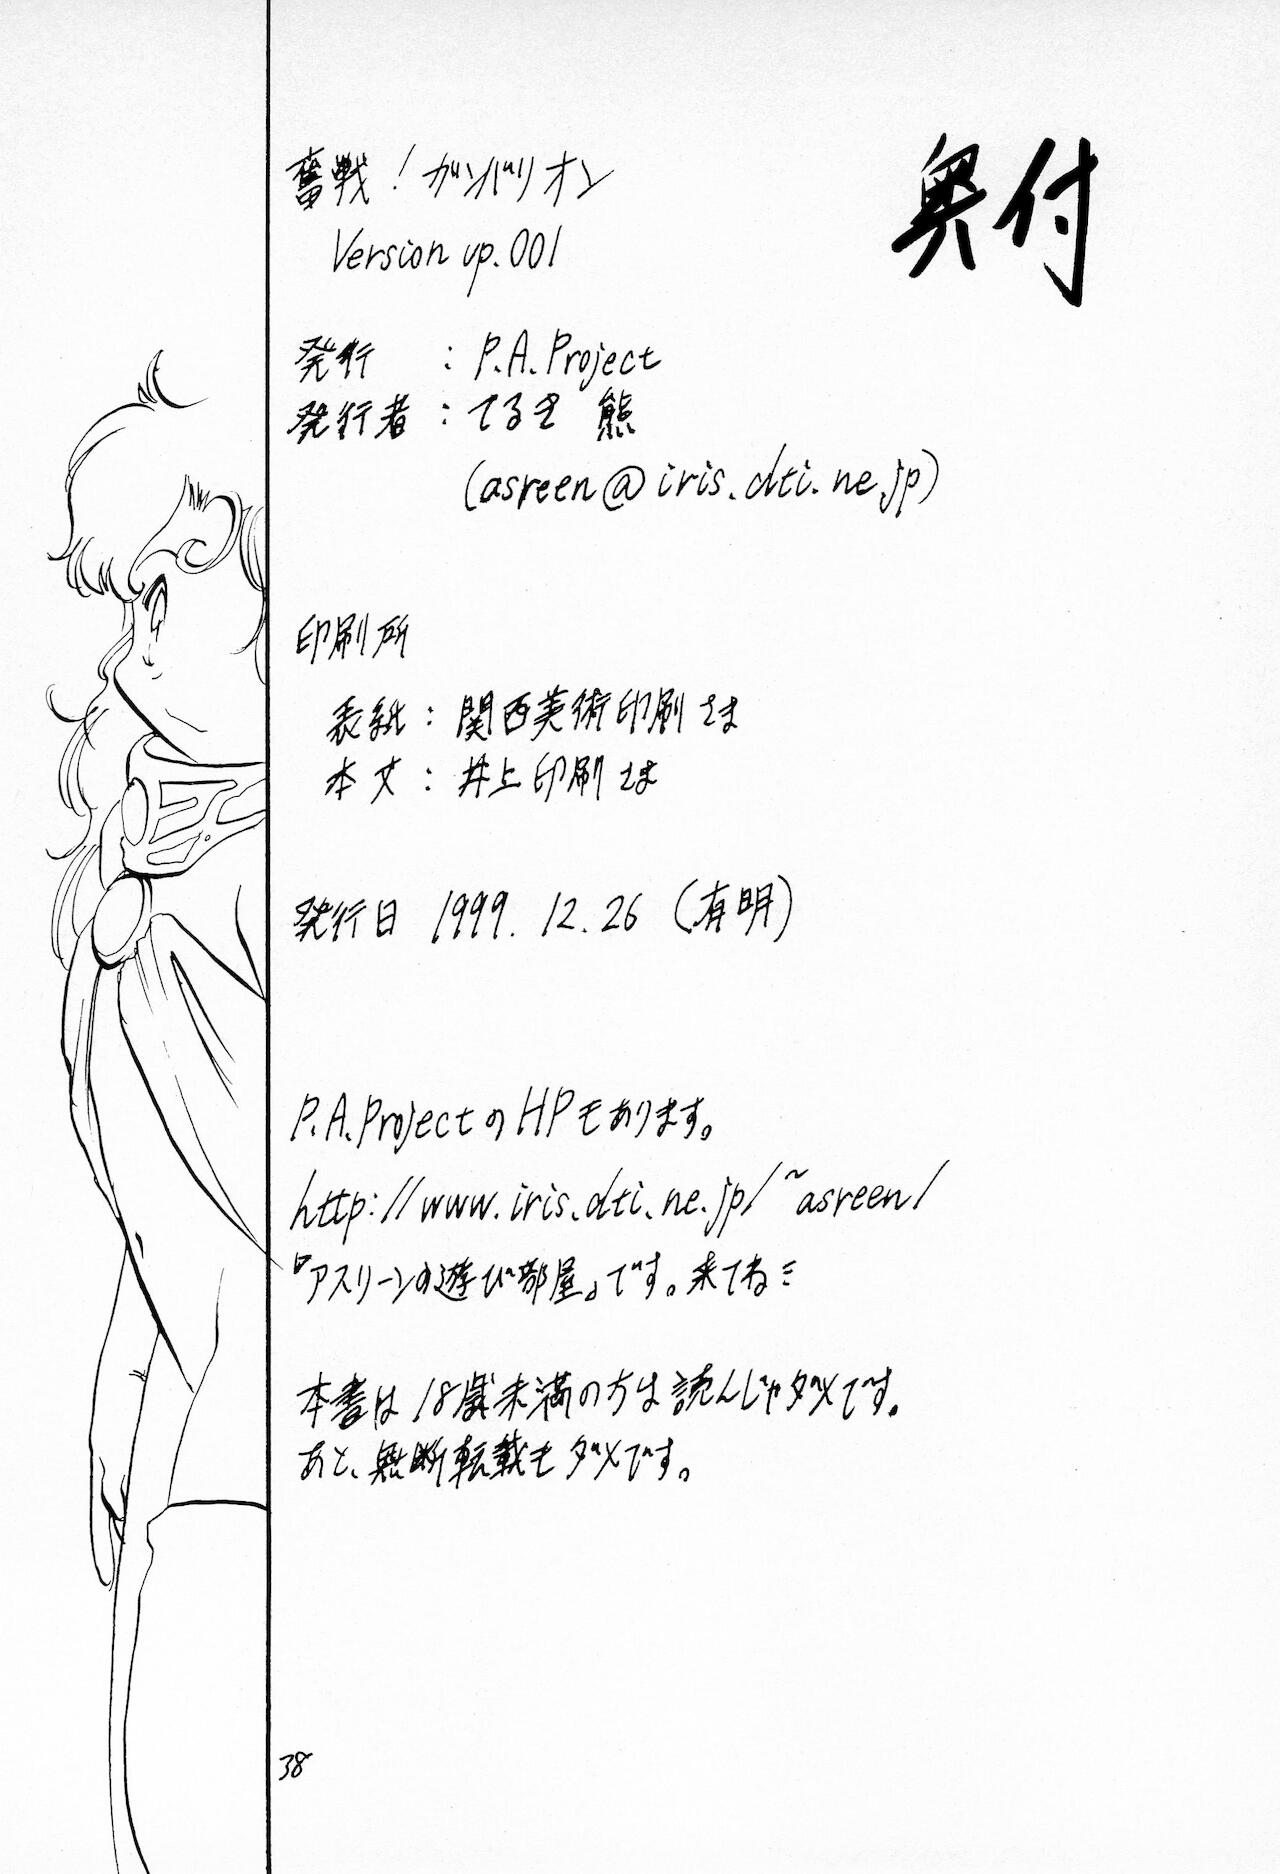 奥付
奮戦!ガンバリオン
Version up.001
発行 : P.A.Project
発行者 : てるき 熊
(asreen@iris.dti.ne.jp)
印刷所
表紙 : 関西美術印刷さま
本文 : 井上印刷さま
発行日 1999.12.26 (有明)
P.A.ProjectのHPもあります。
http://www.iris.dti.ne.jp/~asreen/
『アスリーンの遊び部屋』です。来てねミ
本書は18歳未満の方は読んじゃダメです。
あと、無断転載もダメです。
38